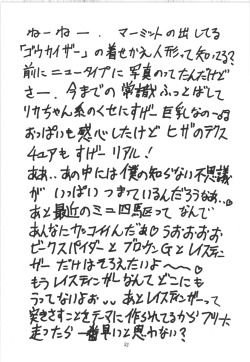 ねーねー、マーミットの出してる
「ゴウカイザー」の着せかえ人形って知ってる?
前にニュータイプに写真のってたんだけど
さー、今までの常識ふっとばして
リカちゃん系のくせにすげー巨乳なの〜
おっぱいも感心したけどヒザのテクス
チュアもすげーリアル!
ああ、あの中には僕の知らない不思議
が いっぱいつまっているんだろうなあ、
あと最近のミニ四駆って なんで
あんなにカッコイイんだぁうおおおお
ビークスパイダーとブロッケンGとレイスティン
ガーだけはそろえたいよ〜♡
もうレイスティンガーなんてどこにも
うってないよぉ。。あとレイスティンガーって
突きさすことをテーマに作られてるからブリット
走ったら一番早いと思わない?